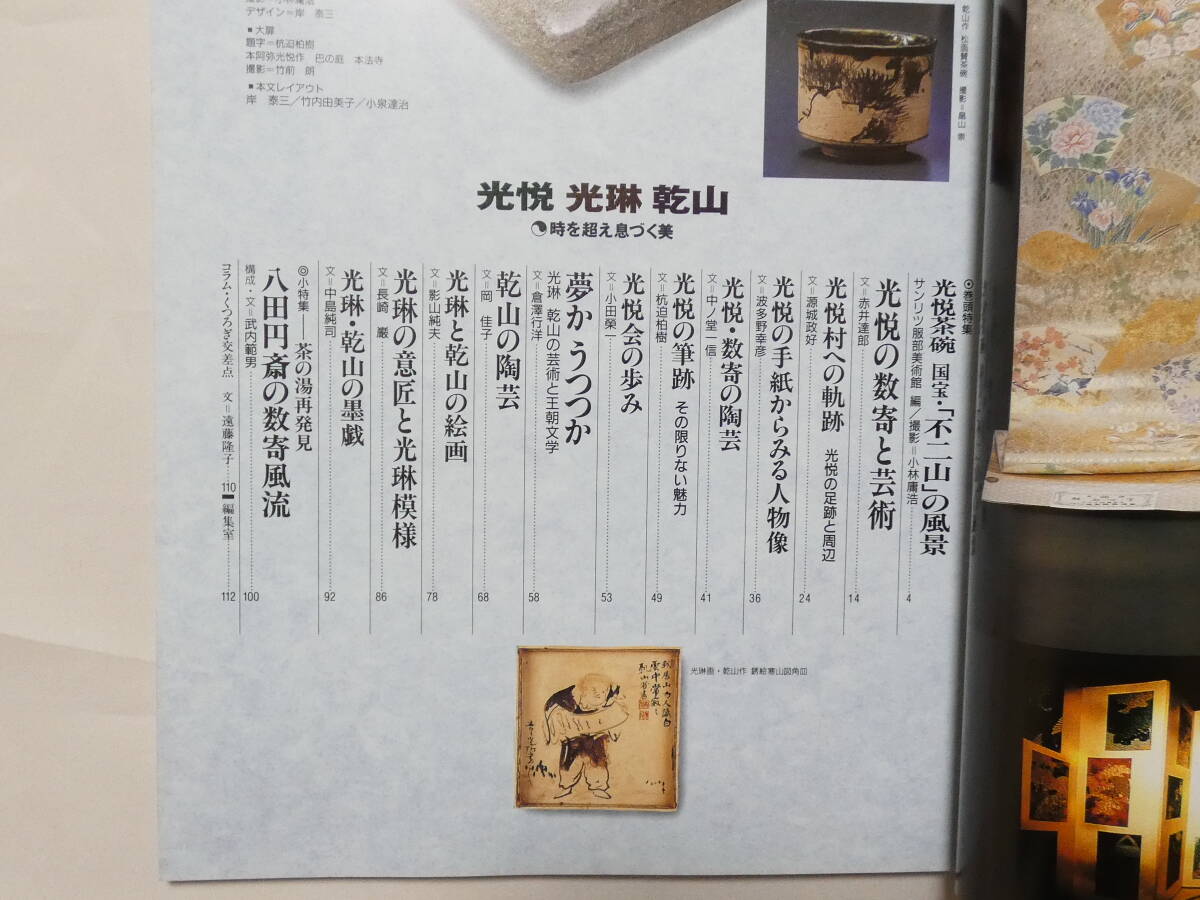 デザイン=岸　泰三
■大扉
題字=杭迫柏樹
本阿弥光悦作　巴の庭　本法寺
撮影=竹前　朗
■本文レイアウト
岸　泰三／竹内由美子／小泉達治
乾山作　松画賛茶碗　撮影=畠山　崇
光悦 光琳 乾山
時を超え息づく美
◎巻頭特集
光悦茶碗 国宝・「不二山」の風景
サンリツ服部美術館　編／撮影=小林庸浩
4
光悦の数寄と芸術
文=赤井達郎
14
光悦村への軌跡　光悦の足跡と周辺
文=源城政好
24
光悦の手紙からみる人物像
文=波多野幸彦
36
光悦・数寄の陶芸
文=中ノ堂一信
41
光悦の筆跡　その限りない魅力
文=杭迫柏樹
49
光悦会の歩み
文=小田榮一
53
夢か うつつか
光琳　乾山の芸術と王朝文学
文=倉澤行洋
58
乾山の陶芸
文=岡　佳子
68
光琳と乾山の絵画
文=影山純夫
78
光琳の意匠と光琳模様
文=長崎　巌
86
光琳・乾山の墨戯
文=中島純司
92
◎小特集——茶の湯再発見
八田円斎の数寄風流
構成・文=武内範男
100
コラム・くつろぎ交差点　文=遠藤隆子 110 ■編集室 112
光琳画・乾山作 銹絵寒山図角皿